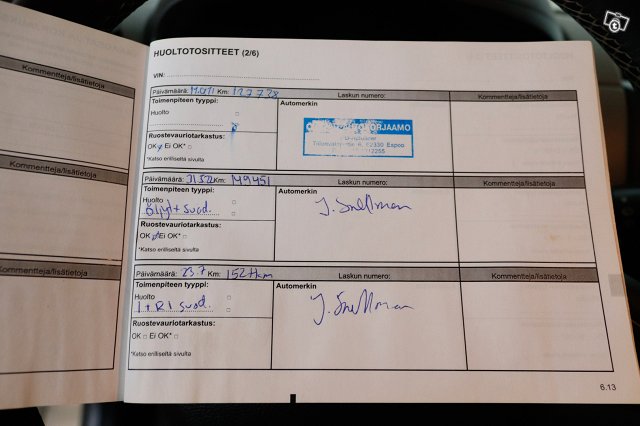 Kommentteja/lisätietoja
Kommentteja/lisätietoja
Kommentteja/lisätietoja
HUOLTOTOSITTEET (2/6)
VIN:
Päivämäärä: Km: 127738
Laskun numero:
Kommentteja/lisätietoja
Toimenpiteen tyyppi:
Automerkin
Huolto
Ruostevauriotarkastus:
OK Ei OK*
*Katso erilliseltä sivulta
6, 02330 Espoo
Päivämäärä: Km: 149451
Laskun numero:
Kommentteja/lisätietoja
Toimenpiteen tyyppi:
Automerkin
Huolto
Öljyt + suod.
J. Snellman
Ruostevauriotarkastus:
OK Ei OK*
*Katso erilliseltä sivulta
Päivämäärä: 23.7 Km: 152tkm
Laskun numero:
Kommentteja/lisätietoja
Toimenpiteen tyyppi:
Automerkin
Huolto
suod.
J. Snellman
Ruostevauriotarkastus:
OK Ei OK*
*Katso erilliseltä sivulta
6.13